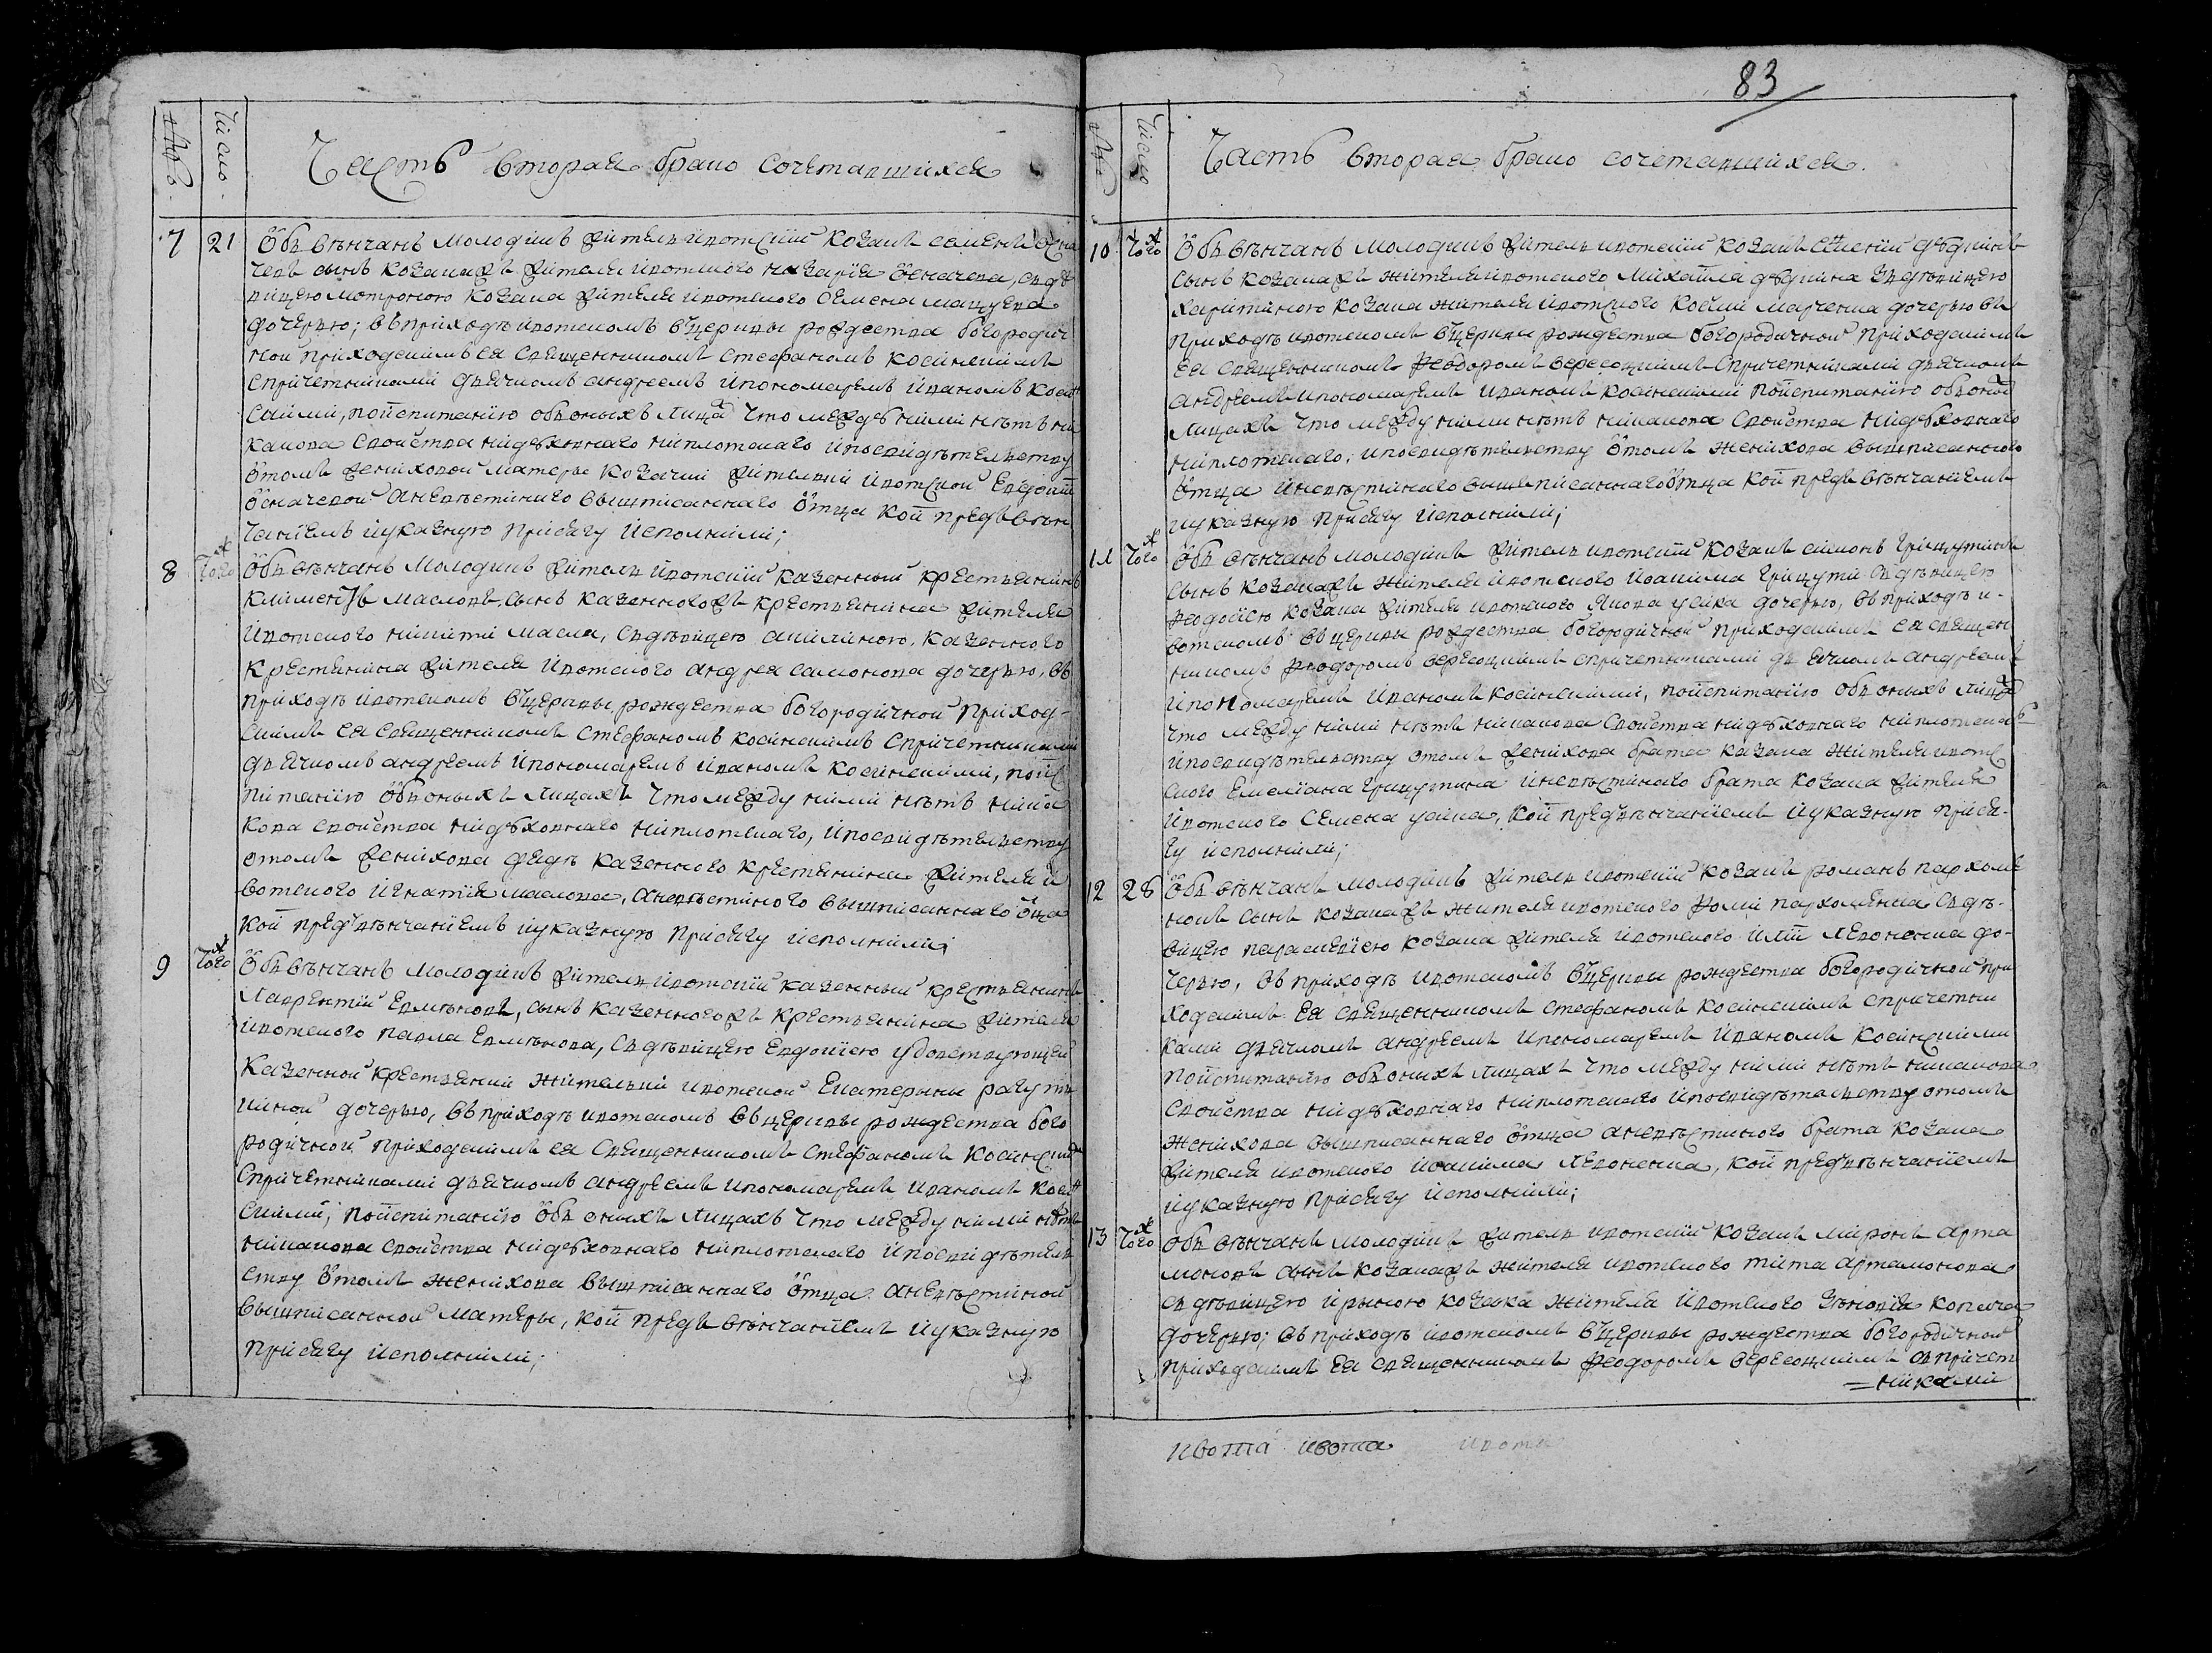 83
№
Число
Часть вторая брако сочетавшихся
7 21 Обвѣнчанъ молодикъ житель ивотскій козакъ семенъ осна
чевъ сынъ козакажъ жителя ивотского назарія осначева, съдѣ
вицею мотроною козака жителя ивотского семена мацуева
дочерью; въ приходѣ ивотскомъ въ церкви рождества богородич
ной приходскимъ ея священникомъ стефаномъ косинскимъ
спричетниками дьячкомъ андреемъ ипономаремъ иваномъ косин
скими, поиспитанію обоныхъ лицах что между ними нѣтъ ни
какова свойства нидуховнаго ниплотскаго ипосвидѣтелству
отомъ жениховой матеры козачки жителки ивотской Евдокіи
осначевой аневѣстиного вышписаннаго отца кои предъ вѣн
чаніемъ иуказную присягу исполнили;
8 того ж Обвѣнчанъ молодикъ житель ивотскій казенный крестьянинъ
климентъ масловъ, сынъ казенногожъ крестьянина жителя
ивотского никити масла, съдѣвицею акилиною, казенного
крестянина жителя ивотского андрея самонова дочерью, въ
приходѣ ивотскомъ въ церквы рождества богородичной приход-
скимъ ея священникомъ стефаномъ косинскимъ спричетниками
дьячкомъ андреемъ ипономаремъ иваномъ косинскими, поис
питанію обоныхъ лицахъ что между ними нѣтъ ника
кова свойства нидуховнаго ниплотскаго, ипосвидѣтелству
отомъ женихова дядѣ казенного крестянина жителя и
вотского игнатія маслова, аневѣстиного вышписаннаго оца
кои предъвѣнчаніемъ иуказную присягу исполнили;
9 того ж Обвѣнчанъ молодикъ житель ивотскій казенный крестьянинъ
Лаврентій Ермаковъ, сынъ казенногожъ крестьянина жителя
ивотского павла Ермакова, съдѣвицею Евдокіею удовствующей
казенной крестьянки жителки ивотской Екатерины
киной дочерью, въ приходѣ ивотскомъ въ церквы рождества бого
родичной приходскимъ ея священникомъ стефаномъ косинским
спричетниками дьячкомъ андреемъ ипономаремъ иваномъ косин
скими, поиспитанію обоныхъ лицахъ что между ними нѣтъ
никакова свойства нидуховнаго ниплотскаго ипосвидѣтель
ству отомъ женихова вышписаннаго отца аневѣстиной
вышписанной матеры, кои предъ вѣнчаніемъ иуказную
присягу исполнили;
№
Число
Часть вторая брако сочетавшихся.
10 того ж Обвѣнчанъ молодикъ житель ивотскій козакъ
сынъ козакажъ жителя ивотского михаила здѣвицею
харитиною козака жителя ивотского марченка дочерью въ
приходѣ ивотскомъ въ церкви рождества богородичной приходскимъ
ея священникомъ Феодоромъ вересоцкимъ спричетниками дьячкомъ
андреемъ ипономаремъ иваномъ косинскими поиспитанію обоных
лицахъ что между ними нѣтъ никакова свойства нидуховнаго
ниплотскаго, ипосвидѣтелству отомъ женихова вышписанного
отца иневѣстинаго вышеписаннаго отца кои предъ вѣнчаніемъ
иуказную присягу исполнили;
11 того ж Обвѣнчанъ молодикъ житель ивотскій козакъ симонъ грицутинъ
сынъ козакажъ жителя ивотского иоакима грицути съдѣвицею
феодосіею козака жителя ивотского якова усика дочерью, въ приходѣ и-
вотскомъ въ церквы рождества богородичной приходскимъ ея священ
никомъ феодоромъ вересоцкимъ спричетниками дьячкомъ андреемъ
ипономаремъ иваномъ косинскими, поиспитанію обоныхъ лицах
что между ними нѣтъ никакова свойства нидуховнаго ниплотскаг
ипосвидѣтелству отомъ женихова брата казака жителя ивотс
кого Емеліана грицутина иневѣстинаго брата козака жителя
ивотского Семена усика, кои предвѣнчаніемъ иуказную прися-
гу исполнили;
12 28 Обвѣнчанъ молодикъ житель ивотскій козакъ романъ пархомѣ
нокъ сынъ козакажъ жителя ивотского фоми пархоменка съдѣ-
вицею параскевіею козака жителя ивотского иліи левоненка до-
черью, въ приходѣ ивотскомъ въ церквы рождества богородичной при
ходскимъ ея священникомъ стефаномъ косинскимъ спричетни
ками дьячкомъ андреемъ ипономаремъ иваномъ косинскими
поиспитанію обоныхъ лицахъ что между ними нѣтъ никакова
свойства нидуховнаго ниплотскаго ипосвидѣтелству отомъ
женихова вышписаннаго отца аневѣстиного брата козака
жителя ивотского иоакима левоненка, кои предъвѣнчаніемъ
иуказную присягу исполнили;
13 того ж Обвѣнчанъ молодикъ житель ивотскій козакъ миронъ арта
моновъ сынъ козакажъ жителя ивотского тита артамонова
съдѣвицею ирыною козака жителя ивотского зѣновія копича
дочерью; въ приходѣ ивотскомъ въ церквы рождества богородичной
приходскимъ ея священникомъ феодоромъ вересоцкимъ съпричет
=никами
ивота ивота ивота